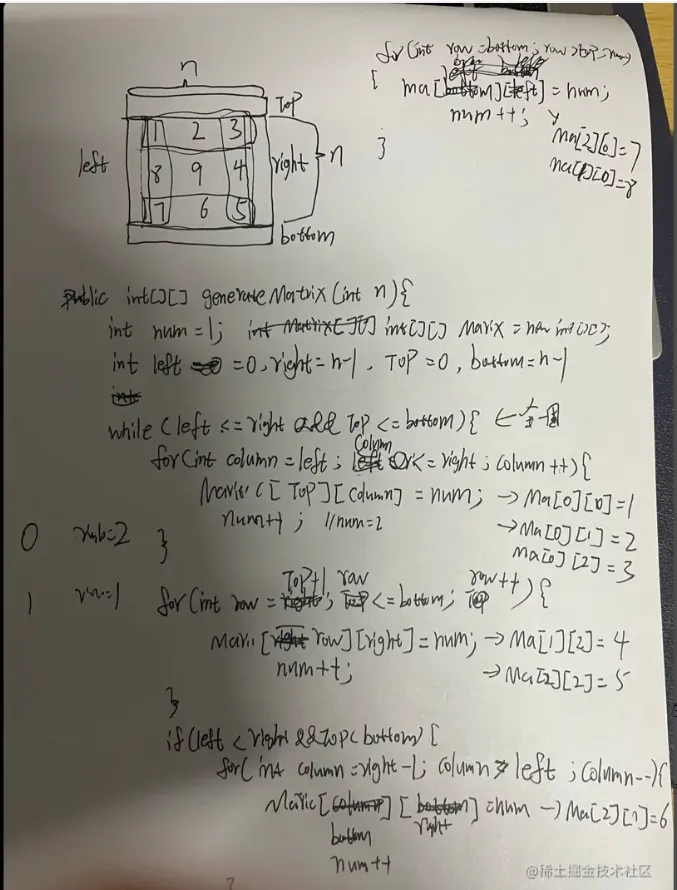 n
Top
1 2 3
left
8 9 4
right
n
7 6 5
bottom
for (int row = bottom; row > top; row
{
ma[bottom][left] = num;
num++;
}
Ma[2][0]=7
Ma[1][0]=8
public int[][] generateMatrix(int n){
int num = 1; int Matrix[][] int[][] Marix = new int[][];
int left = 0, right = n-1, Top = 0, bottom = n-1
int
while (left <= right && Top <= bottom){ ←
for(int column = left; column <= right; column++){
[Top][column] = num; → Ma[0][0]=1
num++; //num=2
→ Ma[0][1]=2
0
}
Ma[0][2]=3
1
for(int row = Top+1; row <= bottom; row++){
[right row][right] = num; → Ma[1][2]=4
num++;
→ Ma[2][2]=5
}
if(left < right && Top < bottom) {
for(int column = right-1; column > left; column--){
[column] [bottom] = num → Ma[2][1]=6
bottom right
num++
@稀土掘金技术社区